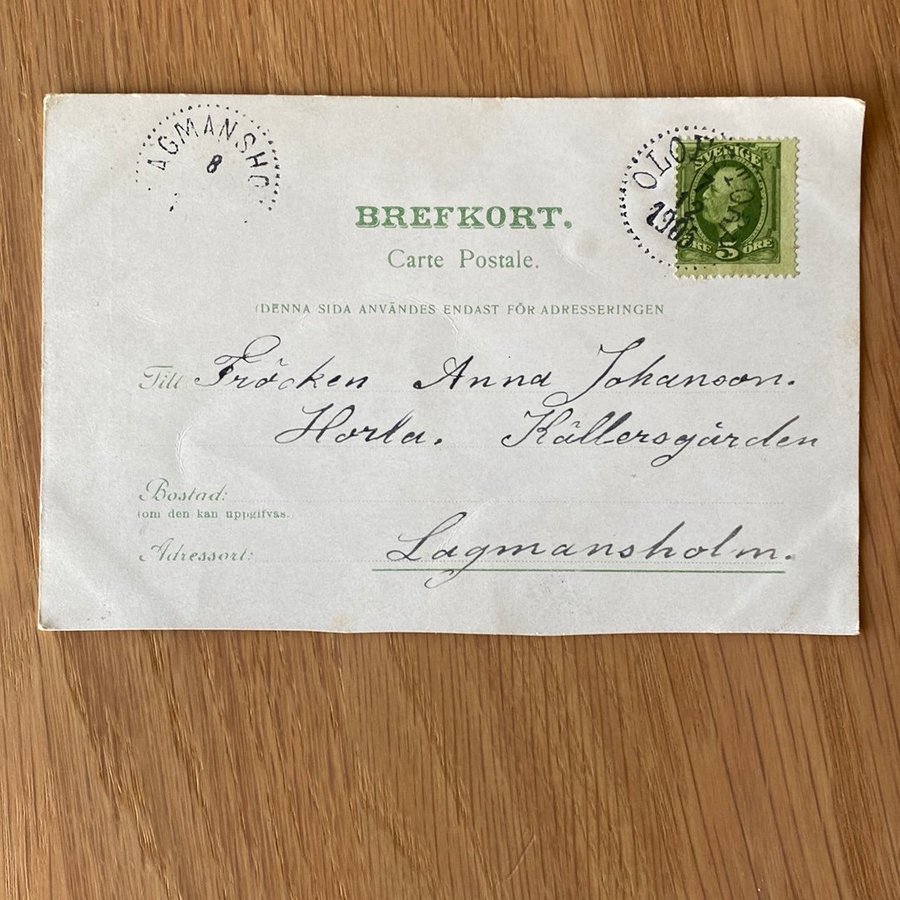 AGMANSHO
8
OLOF
1905
SVERIGE
5 ÖRE
BREFKORT.
Carte Postale.
(DENNA SIDA ANVÄNDES ENDAST FÖR ADRESSERINGEN
Till Fröcken Anna Johanson.
Horla. Källersgården
Bostad:
(om den kan uppgifvas.
Adressort: Lagmansholm.